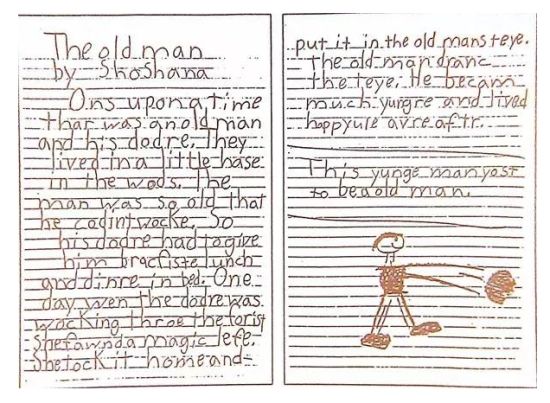 The old man
by Shoshana
Ons upon a time
thar was an old man
and his dodre. They
lived in a little hase
in the wods. The
man was so old that
he codint wocke. So
his dodre had to give
him bracfiste lunch
and dinre in bed. One
day wen the dodre was
wocking throe the forist
she fawnd a magic lefe.
She tock it home and
put it in the old mans teye.
The old man dranc
the teye. He becam
much yungre and lived
happyule avre aftr.
This yunge man yost
to be a old man.